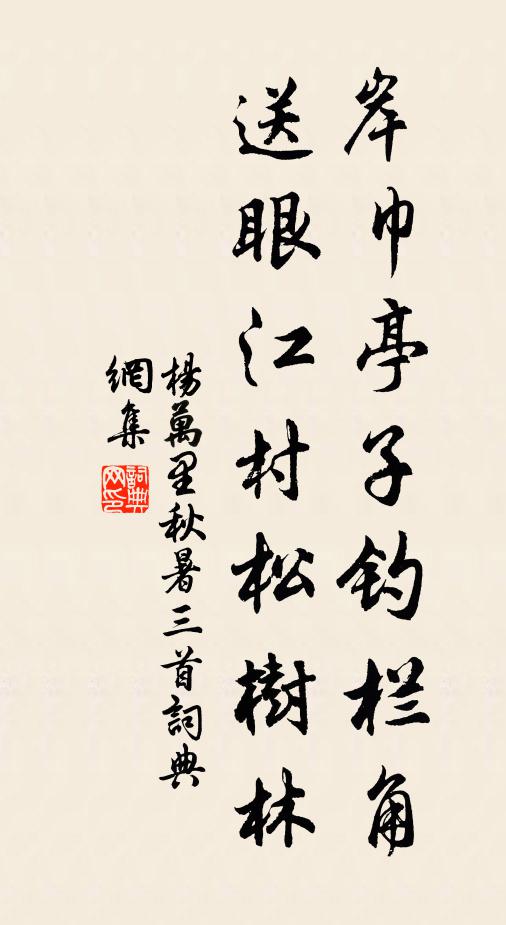 岸巾亭子钓栏角
送眼江村松樹林
楊萬里秋暑三首詞典
網集
詞典网印